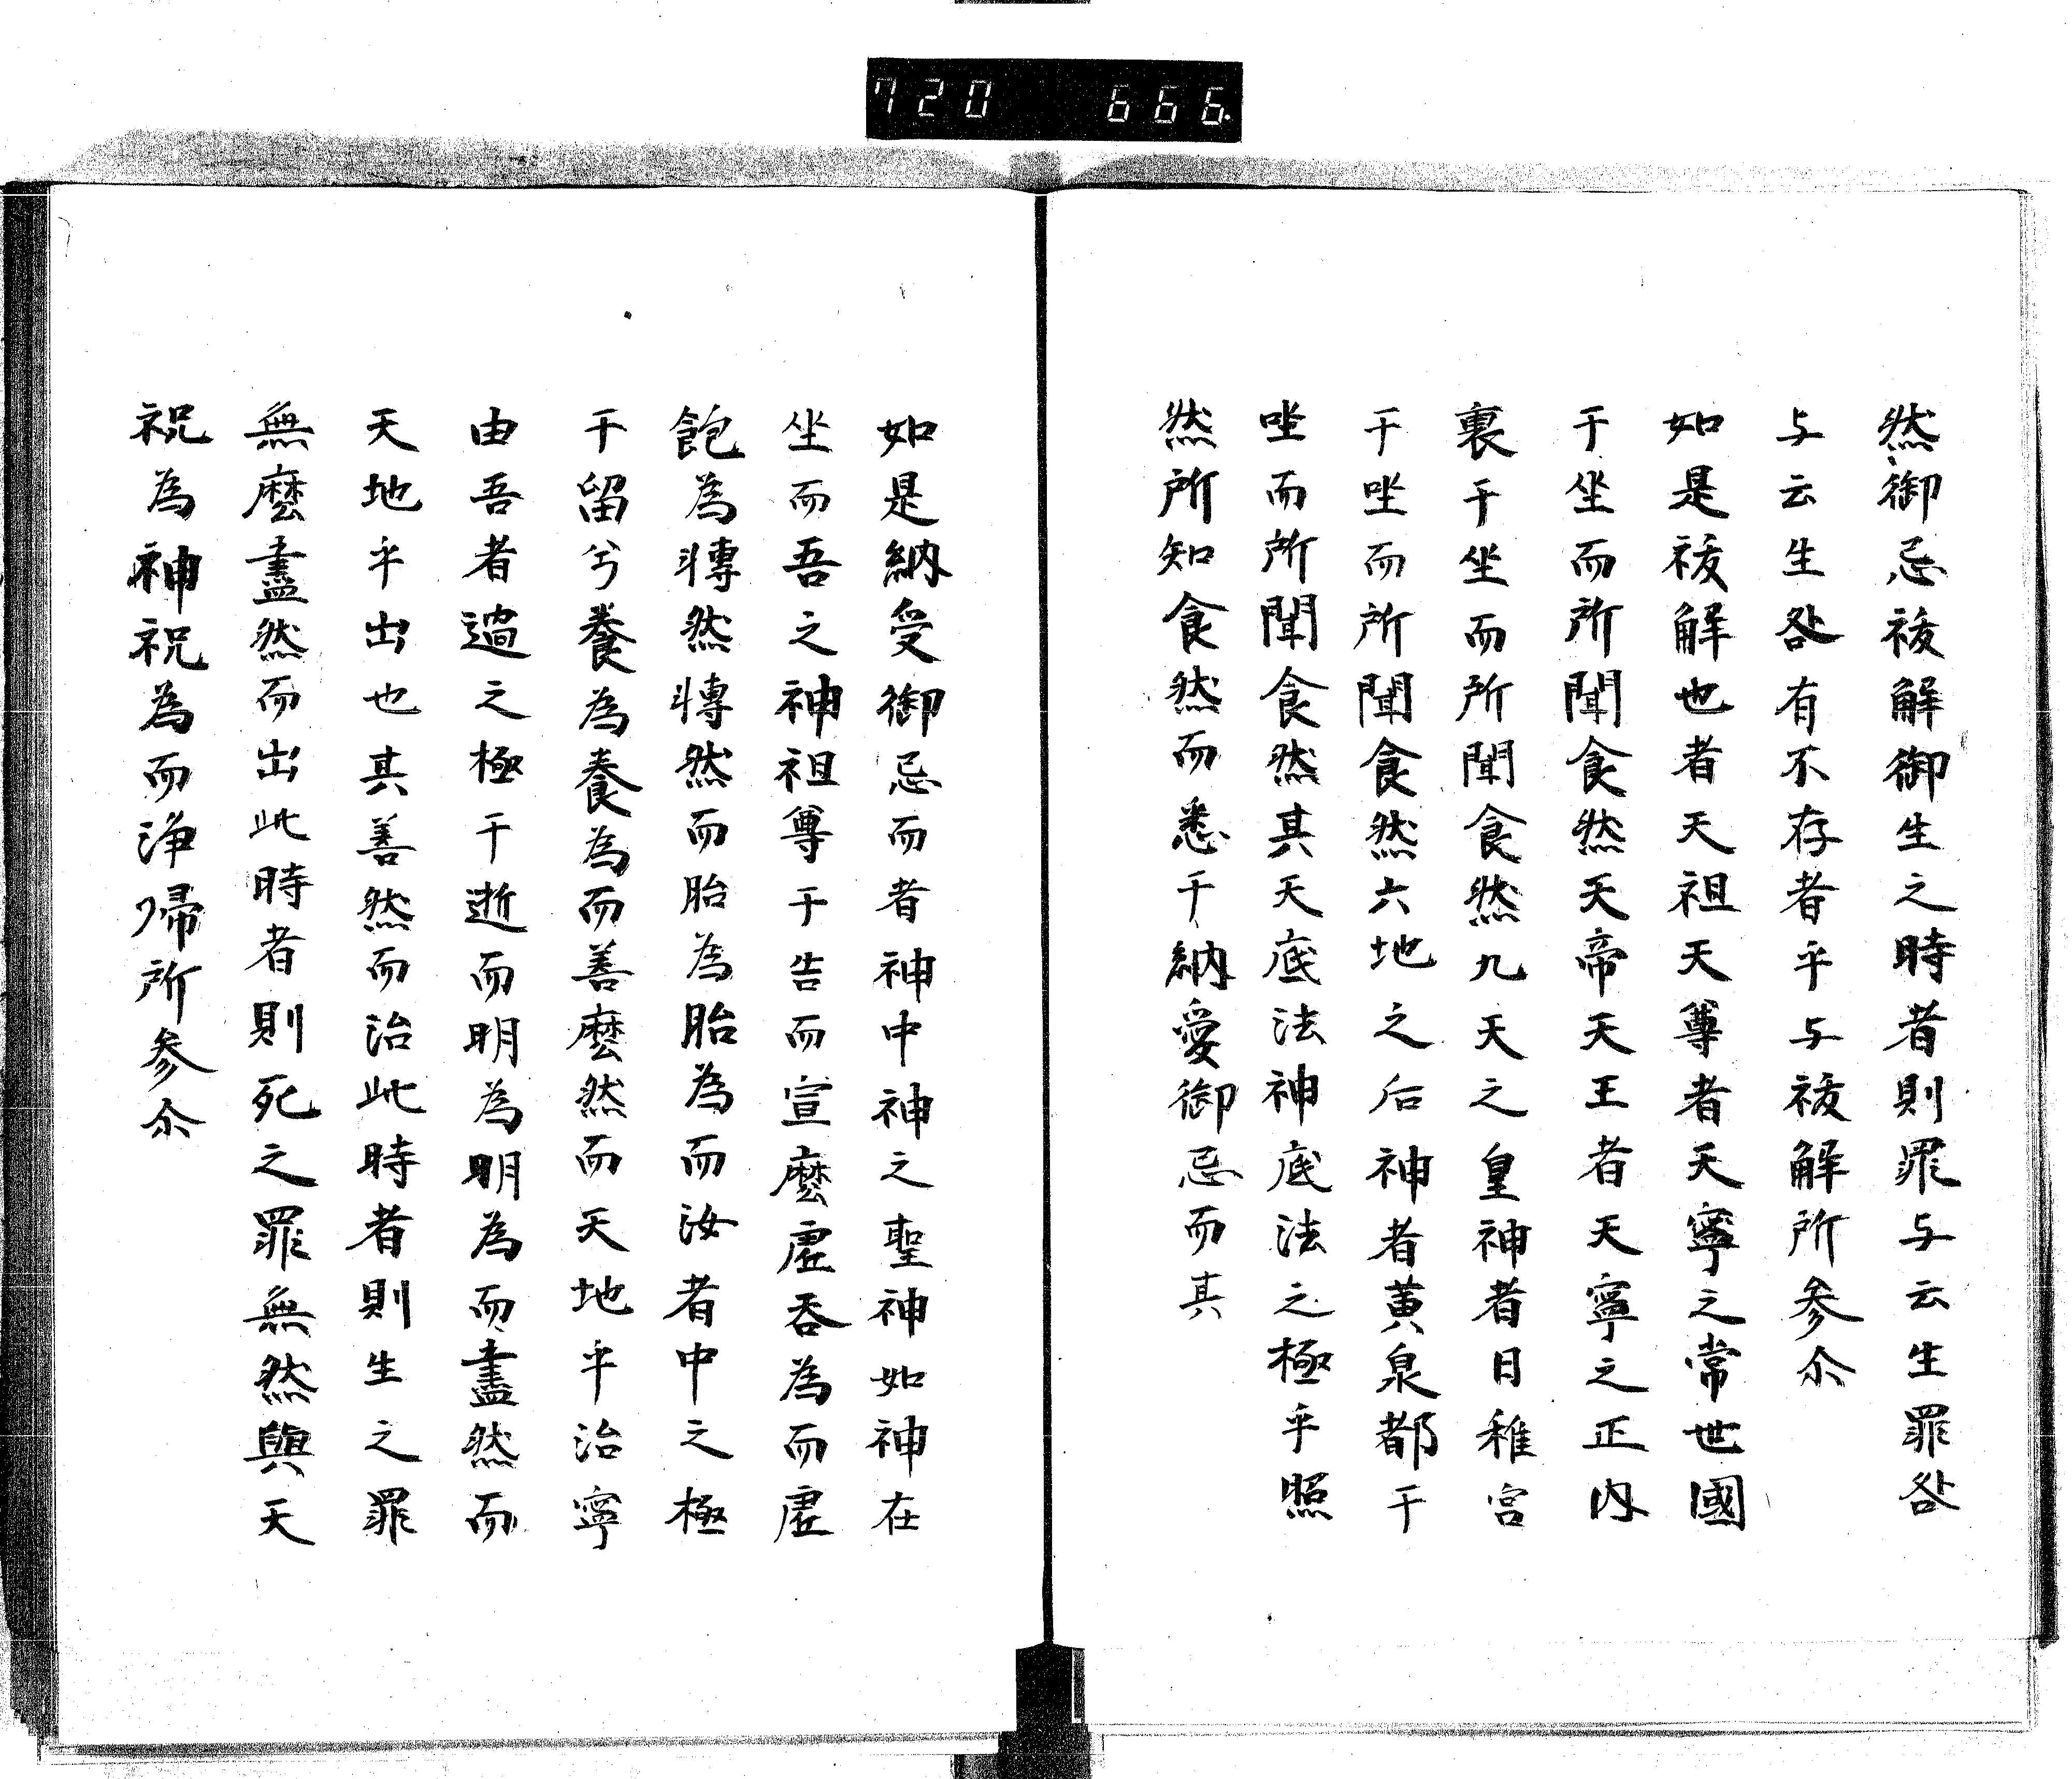 720 666
然御忌祓解御生之時者則罪与云生罪咎
与云生咎有不存者乎与祓解所参尒
如是祓解也者天祖天尊者天寧之常世國
于坐而所聞食然天帝天王者天寧之正内
裏于坐而所聞食然九天之皇神者日稚宮
于坐而所聞食然六地之后神者黄泉都于
坐而所聞食然其天底法神底法之極乎照
然所知食然而悉于納受御忌而其
如是納受御忌而者神中神之聖神如神在
坐而吾之神祖尊于告而宣麼虚吞為而虚
飽為轉然轉然而胎為胎為而汝者中之極
于留兮養為養為而善麼然而天地乎治寧
由吾者過之極于逝而明為明為而盡然而
天地乎出也其善然而治此時者則生之罪
無麼盡然而出此時者則死之罪無然與天
祝為神祝為而浄帰所参尒